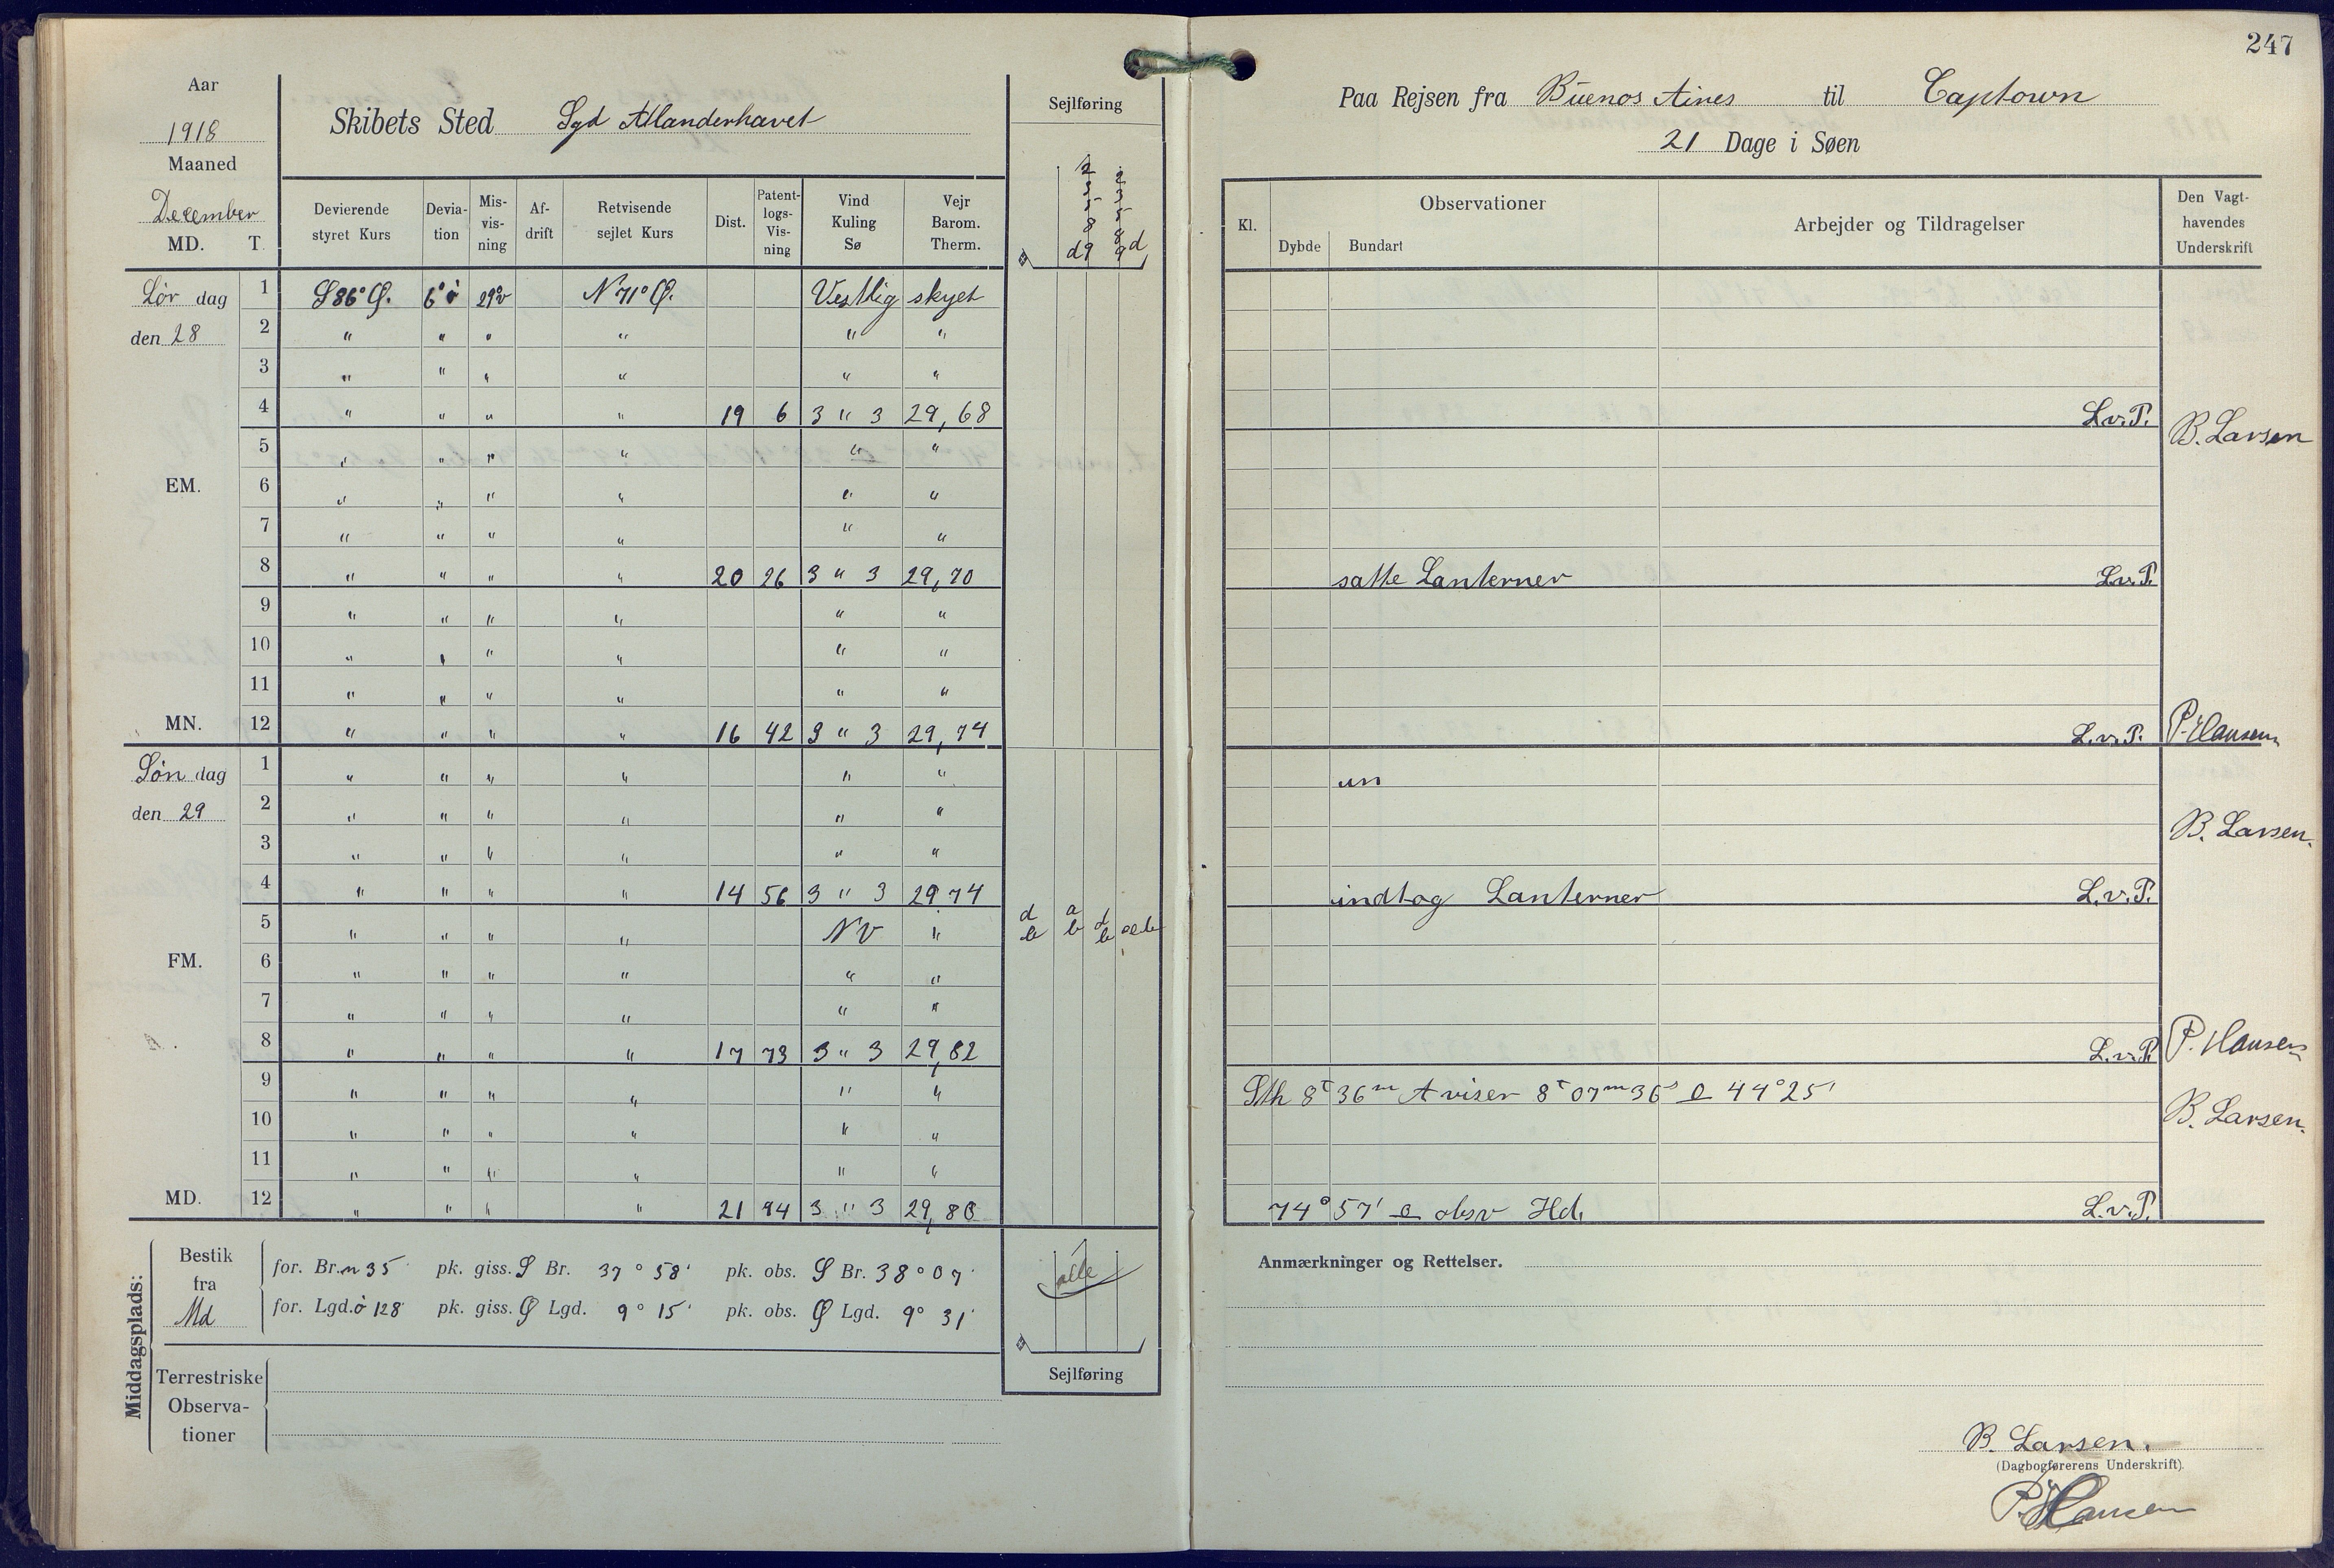 247
Aar
1918
Maaned
December
MD. T.
Skibets Sted Syd Atlanderhavet
Sejlføring
Paa Rejsen fra Buenos Aires til Captown
21 Dage i Søen
Devierende styret Kurs Devia-tion Mis-vis-ning Af-drift Retvisende sejlet Kurs Dist. Patent-logs-Vis-ning Vind Kuling Sø Vejr Barom. Therm.
Kl. Observationer Dybde Bundart Arbejder og Tildragelser Den Vagt-havendes Underskrift
Lør dag 1 S 86° Ø. 6° ö 29° v N 71° Ø. Vestlig skyet
den 28 2 " " " " " "
3 " " " " " "
4 " " " " 19 6 3 " 3 29,68 L.v.P. B. Larsen
5 " " " " " "
EM. 6 " " " " " "
7 " " " " " "
8 " " " " 20 26 3 " 3 29,70 satte Lanterner L.v.P.
9 " " " " " "
10 " " " " " "
11 " " " " " "
MN. 12 " " " " 16 42 3 " 3 29,74 L.v.P. P. Hansen
Søn dag 1 " " " " " "
den 29 2 " " " " " " B. Larsen.
3 " " " " " "
4 " " " " 14 56 3 " 3 29 74 indtog Lanterner L.v.P.
5 " " " " NV "
FM. 6 " " " " " "
7 " " " " " "
8 " " " " 17 73 3 " 3 29,82 L.v.P. P. Hansen
9 " " " " " " 8ᵗ 36ᵐ A viser 8ᵗ 07ᵐ 36ˢ 44° 25'
10 " " " " " " B. Larsen.
11 " " " " " "
MD. 12 " " " " 21 94 3 " 3 29,80 74° 57' obsv Hd. L.v.P.
Middagsplads:
Bestik fra Md
for. Br. n 35' pk. giss. S Br. 37° 58' pk. obs. S Br. 38° 07'
for. Lgd. ö 128' pk. giss. Ø Lgd. 9° 15' pk. obs. Ø Lgd. 9° 31'
alle
Sejlføring
Terrestriske Observa-tioner
Anmærkninger og Rettelser.
B. Larsen.
(Dagbogførerens Underskrift).
P. Hansen